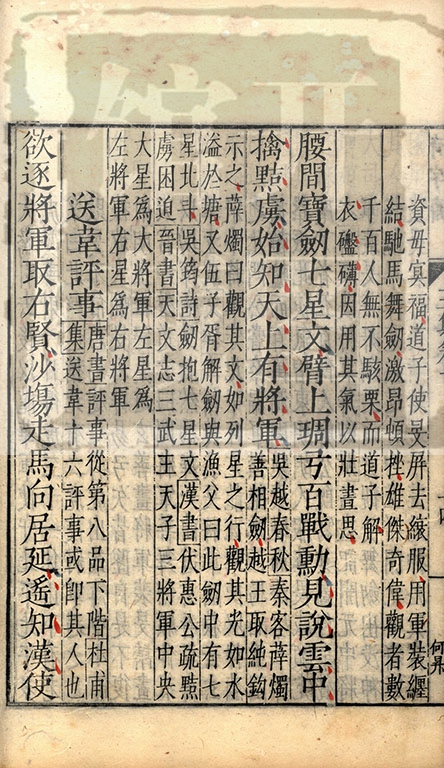 資毋冥福道子使旻屏去縗服用軍裝纏
結馳馬舞劒激昂頓挫雄傑奇偉觀者數
千百人無不駭栗而道子解
衣礴因用其氣以壯畫思
腰間寶劒七星文臂上琱弓百戰勳見說雲中
擒黠虜始知天上有將軍
吳越春秋秦客薛燭
善相劒越王取純鈎
示之薛燭曰觀其文如列星之行觀其光如水
溢於塘又伍子胥解劒與漁父曰此劒中有七
星北斗吳筠詩劒抱七星文漢書伏惠公疏黠
虜困迫晉書天文志三武王天子三將軍中央
大星為大將軍左星為
左將軍右星為右將軍
送韋評事
唐書評事從第八品下階杜甫
集送韋十六評事或即其人也
欲逐將軍取右賢沙塲走馬向居延遙知漢使